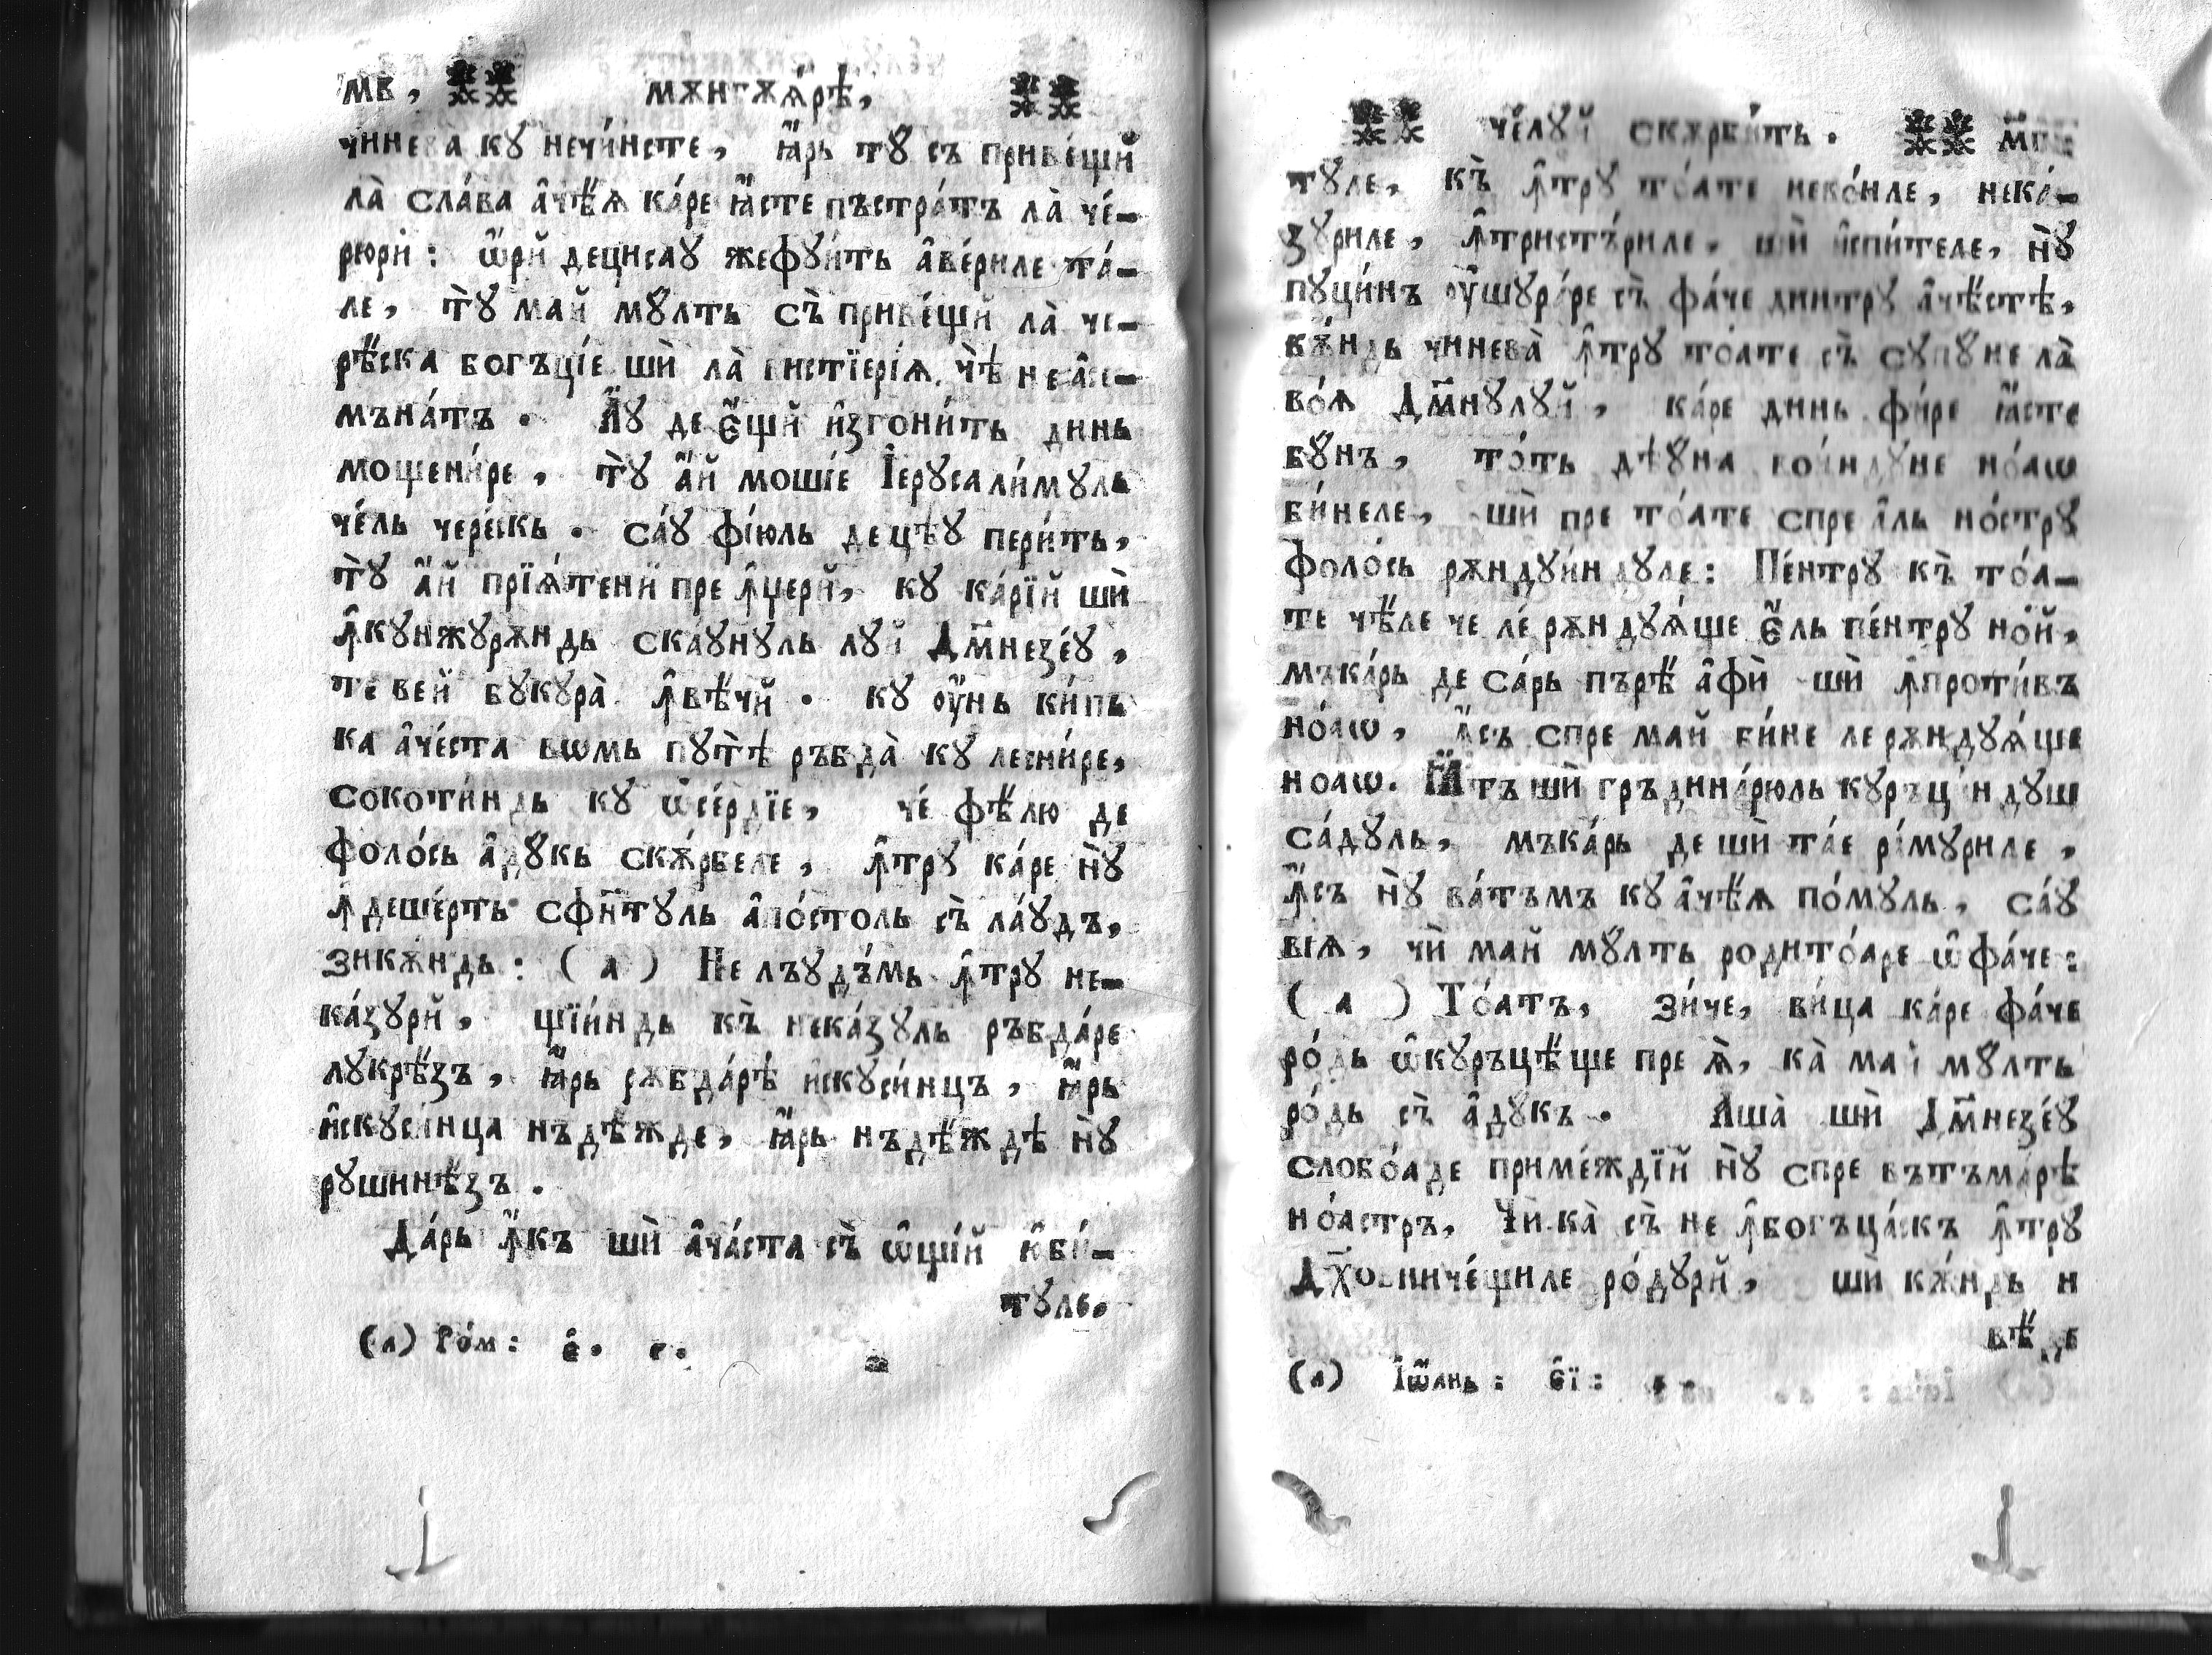 мв, мѫнгѫꙗ́рѣ,
чинева кꙋ нечи́нсте, ꙗ҆́рь тꙋ съ приве́щй
ла̀ сла́ва а҆чѣ́ѧ ка́ре ꙗ҆́сте пъстра́тъ ла̀ че́-
рюри: ѡ҆́рй децисаꙋ жефꙋи́ть а҆ве́риле та́-
ле, тꙋ̀ май мꙋ́лть съ̀ приве́щй ла̀ че-
рѣ́ска богъці́е шѝ ла̀ вистїері́ѧ, чѣ̀ не а҆се-
мъна́тъ. А҆́ꙋ де є҆́щй и҆згони́ть динь
мощени́ре, тꙋ̀ а҆́й моші́е І҆ерꙋсали́мꙋль
че́ль чере́скь. са́ꙋ фі́юль децѣꙋ пери́ть,
тꙋ̀ а҆́й прїѧ́тенй пре ꙟ҆́џерй, кꙋ ка́рїй шѝ
ꙟ҆кꙋнжꙋрѫндь ска́ꙋнꙋль лꙋй Дм҃незе́ꙋ,
те вей бꙋкꙋра̀ ꙟ҆вѣ́чй. кꙋ ѹ҆́нь ки́пь
ка а҆че́ста вѡмь пꙋтѣ̀ ръбда̀ кꙋ лесни́ре,
сокоти́ндь кꙋ ѡ҆се́рдїе, че́ фѣ́лю де
фоло́сь а҆дꙋ́кь скѫ́рбеле, ꙟ҆трꙋ ка́ре нꙋ̀
ꙟ҆дешерть сфн҃тꙋль а҆по́столь съ̀ ла́ꙋдъ,
зикѫндь: ( а ) Не лъꙋдъ́мь ꙟ҆трꙋ не-
ка́зꙋрй, щїи́ндь къ̀ нека́зꙋль ръбда́ре
лꙋкрѣ́зъ, ꙗ҆́рь рѫбда́рѣ и҆скꙋси́нцъ, ꙗ҆́рь
и҆скꙋси́нца нъдѣ́жде, ꙗ҆́рь нъдѣ́ждѣ нꙋ̀
рꙋшинѣ́зъ.
Да́рь ꙟ҆́къ шѝ а҆ча́ста съ̀ ѡ҆щі́й ю҆би́-
тꙋле,
(а) Ро́м: є҆. г.
че́лꙋй скѫрби́ть. мг
тꙋле, къ̀ ꙟ҆трꙋ то́ате нево́иле, нека́-
зꙋриле, ꙟ҆тристъ́риле, шѝ и҆спи́теле, нꙋ̀
пꙋци́нъ ѹ҆шꙋра́ре съ̀ фа́че динтрꙋ а҆чѣ́стѣ,
кѫ́ндь чинева̀ ꙟ҆трꙋ то́ате съ̀ сꙋпꙋне ла̀
во́ѧ Дм҃нꙋлꙋй, ка́ре динь фи́ре ꙗ҆́сте
бꙋ́нъ, то́ть дѣꙋна вои́ндꙋне но́аѡ
би́неле, шѝ пре то́ате спре а҆ль но́стрꙋ
фоло́сь рѫндꙋи́ндꙋле: Пе́нтрꙋ къ̀ то́а-
те чѣ́ле че ле́ рѫндꙋꙗ́ще є҆́ль пе́нтрꙋ но́й,
мъка́рь де са́рь пърѣ́ а҆фѝ шѝ ꙟ҆проти́въ
но́аѡ, ꙟ҆́съ спре май би́не ле рѫндꙋꙗ́ще
ноаѡ. Ꙗ҆́тъ шѝ гръдина́рюль кꙋръци́ндꙋш
са́дꙋль, мъка́рь де шѝ та́е ра́мꙋриле,
ꙟ҆́съ нꙋ̀ ва́тъмъ кꙋ а҆чѣ́ѧ по́мꙋль, са́ꙋ
ві́ѧ, чѝ май мꙋ́лть родито́аре ѡ҆ фа́че:
( а ) То́атъ, зи́че, ви́ца ка́ре фа́че
ро́дь ѡ҆ кꙋръцѣ́ще пре ѧ̀, ка̀ май мꙋ́лть
ро́дь съ̀ а҆дꙋкъ. Аша̀ шѝ Дм҃незе́ꙋ
слобо́аде приме́ждїй нꙋ̀ спре вътъма́рѣ
но́астръ, Чѝ ка̀ съ̀ не ꙟ҆богъца́скъ ꙟ҆трꙋ
Дх҃овниче́щиле ро́дꙋрй, шѝ кѫ́ндь и
(а) І҆ѡ҆́ань: є҆ї: